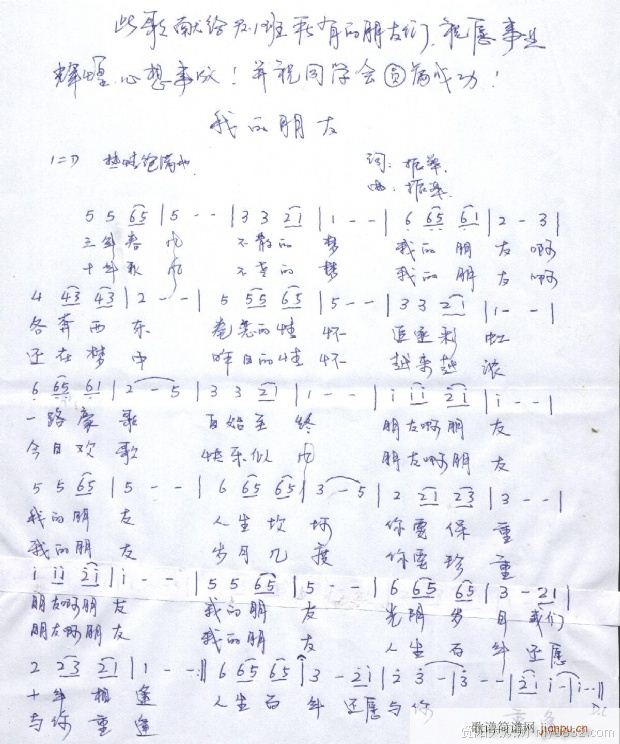 此歌献给 班所有的朋友们,祝愿事业
辉煌,心想事成!并祝同学会圆满成功!
我的朋友
1=D 热情饱满地 词:振华
曲:振华
5 5 65 | 5 - - | 3 3 21 | 1 - - | 6 65 61 | 2 - 3 |
三年春风 不散的梦 我的朋友啊
十年歌风 不老的梦 我的朋友啊
4 43 43 | 2 - - | 5 55 65 | 5 - - | 3 3 21 | 1 - - |
各奔西东 的情怀 追逐彩虹
还在梦中 昨日的情怀 越来越浓
6 65 61 | 2 - 5 | 3 3 21 | 1 - - | i ii 2i | i - - |
一路高歌 自始至终 朋友啊朋友
今日欢歌 快乐似风 朋友啊朋友
5 5 65 | 5 - - | 6 65 65 | 3 - 5 | 2 21 23 | 3 - - |
我的朋友 人生坎坷 你要保重
我的朋友 岁月几度 你要珍重
i ii 2i | i - - | 5 5 65 | 5 - - | 6 65 65 | 3 - 21 |
朋友啊朋友 我的朋友 光阴岁月我们
朋友啊朋友 我的朋友 人生百年还愿
2 23 21 | 1 - - :|| 6 65 65 | 3 - 2i | 2 3 - | 3 - - | 2i i - | i - - || D.C
十年相逢 人生百年还愿与你 重逢
与你重逢
歌谱简谱网 jianpu.cn